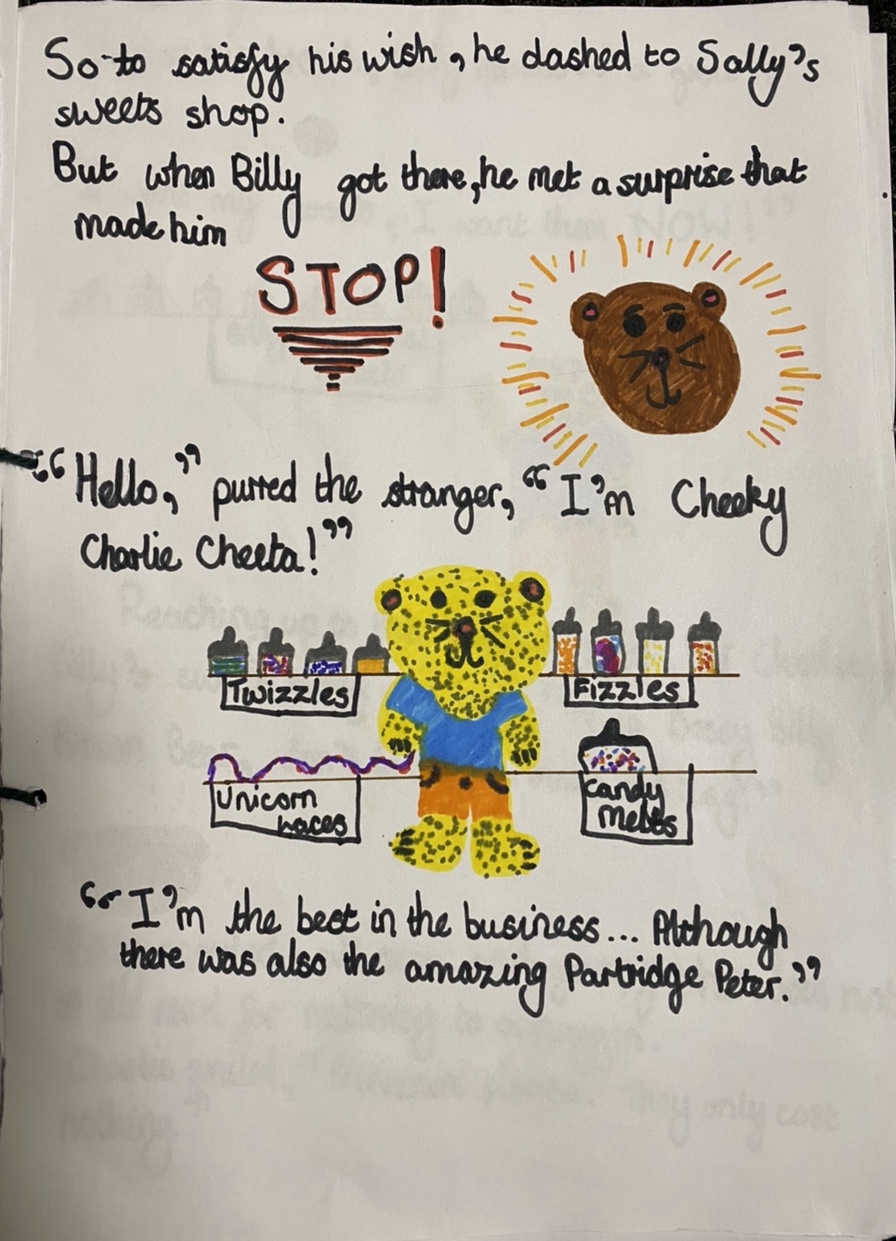 So to satisfy his wish, he dashed to Sally's
sweets shop.
But when Billy got there, he met a surprise that
made him
STOP!
"Hello," purred the stranger, "I'm Cheeky
Charlie Cheeta!"
Twizzles
Fizzles
Unicorn
Laces
Candy
Melts
"I'm the best in the business... Although
there was also the amazing Partridge Peter."